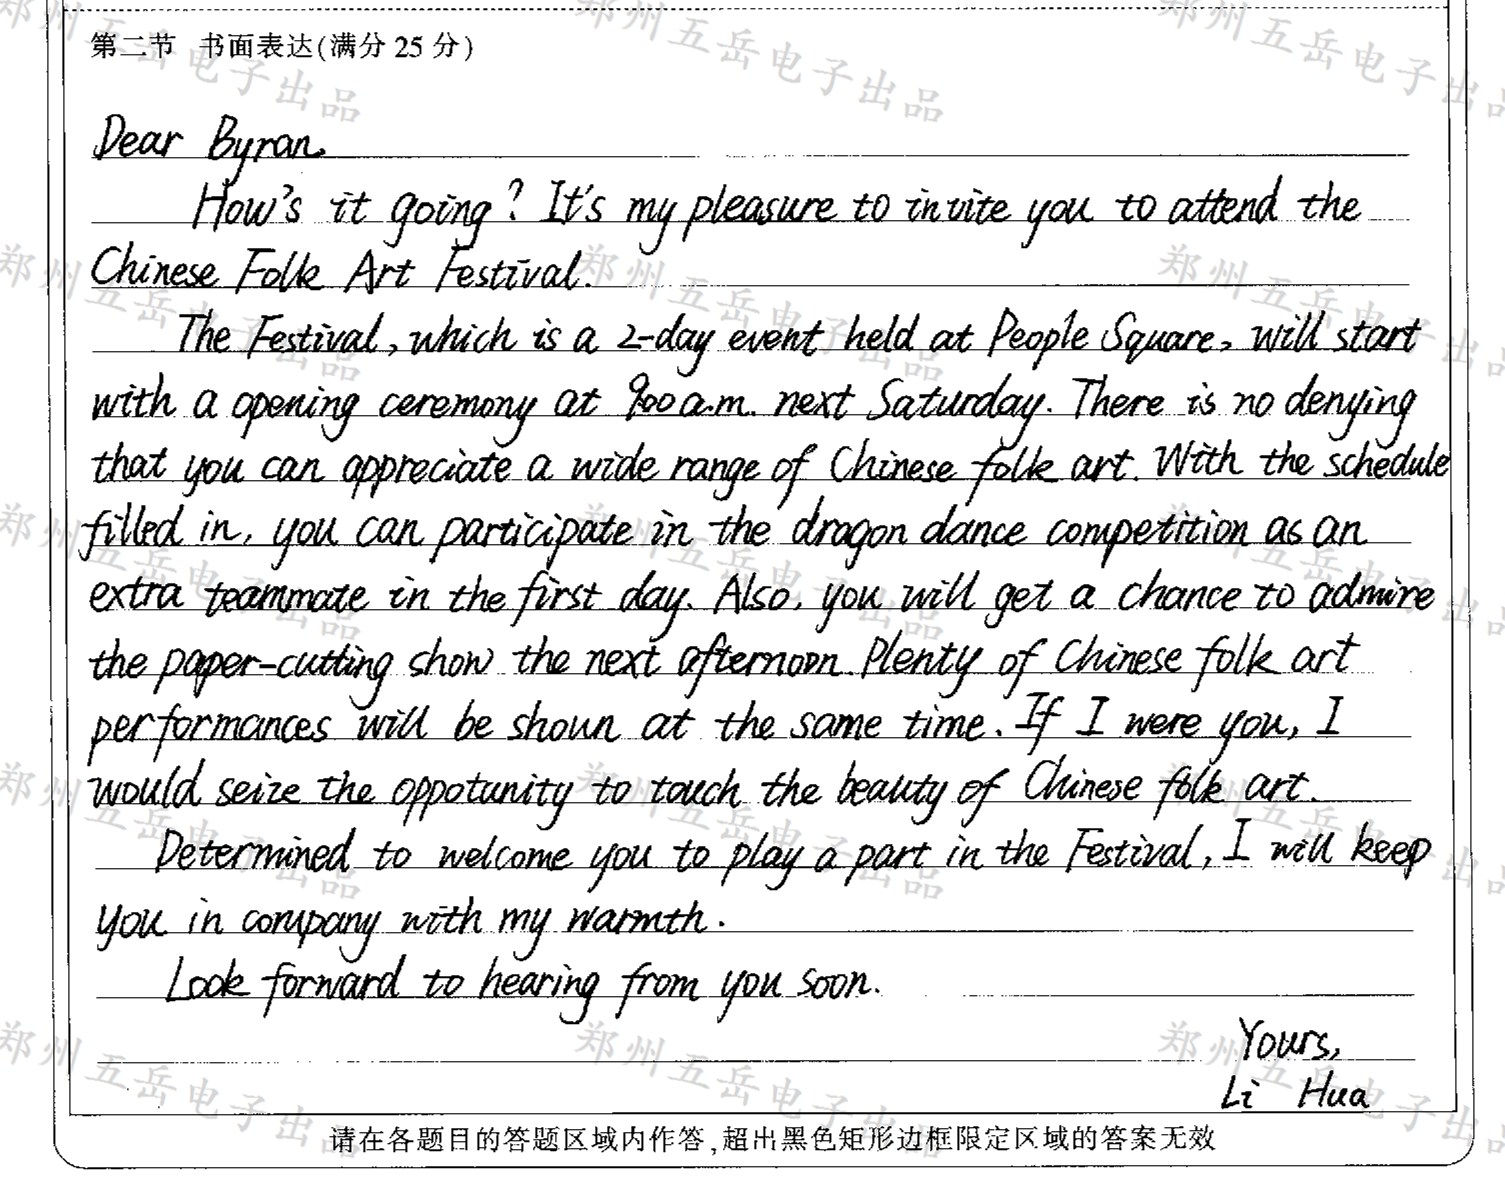 第二节 书面表达(满分 25 分)
Dear Byran,
How's it going? It's my pleasure to invite you to attend the
Chinese Folk Art Festival.
The Festival, which is a 2-day event held at People Square, will start
with a opening ceremony at 9:00 a.m. next Saturday. There is no denying
that you can appreciate a wide range of Chinese folk art. With the schedule
filled in, you can participate in the dragon dance competition as an
extra teammate in the first day. Also, you will get a chance to admire
the paper-cutting show the next afternoon. Plenty of Chinese folk art
performances will be shown at the same time. If I were you, I
would seize the oppotunity to touch the beauty of Chinese folk art.
Determined to welcome you to play a part in the Festival, I will keep
you in company with my warmth.
Look forward to hearing from you soon.
Yours,
Li Hua
请在各题目的答题区域内作答,超出黑色矩形边框限定区域的答案无效
郑州五岳电子出品